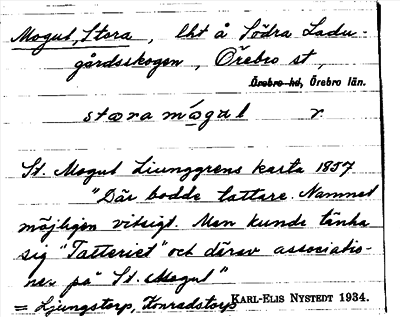 Mogul, Stora, lht å Södra Ladu-
gårdsskogen, Örebro st,
Örebro hd, Örebro län.
stœra mǿgœl r
St. Mogul Liunggrens karta 1857
"Där bodde tattare. Namnet
möjligen vitsigt. Man kunde tänka
sig "Tatteriet" och därav associatio-
ner på "St. Mogul"
= Ljungstorp, Konradstorp KARL-ELIS NYSTEDT 1934.